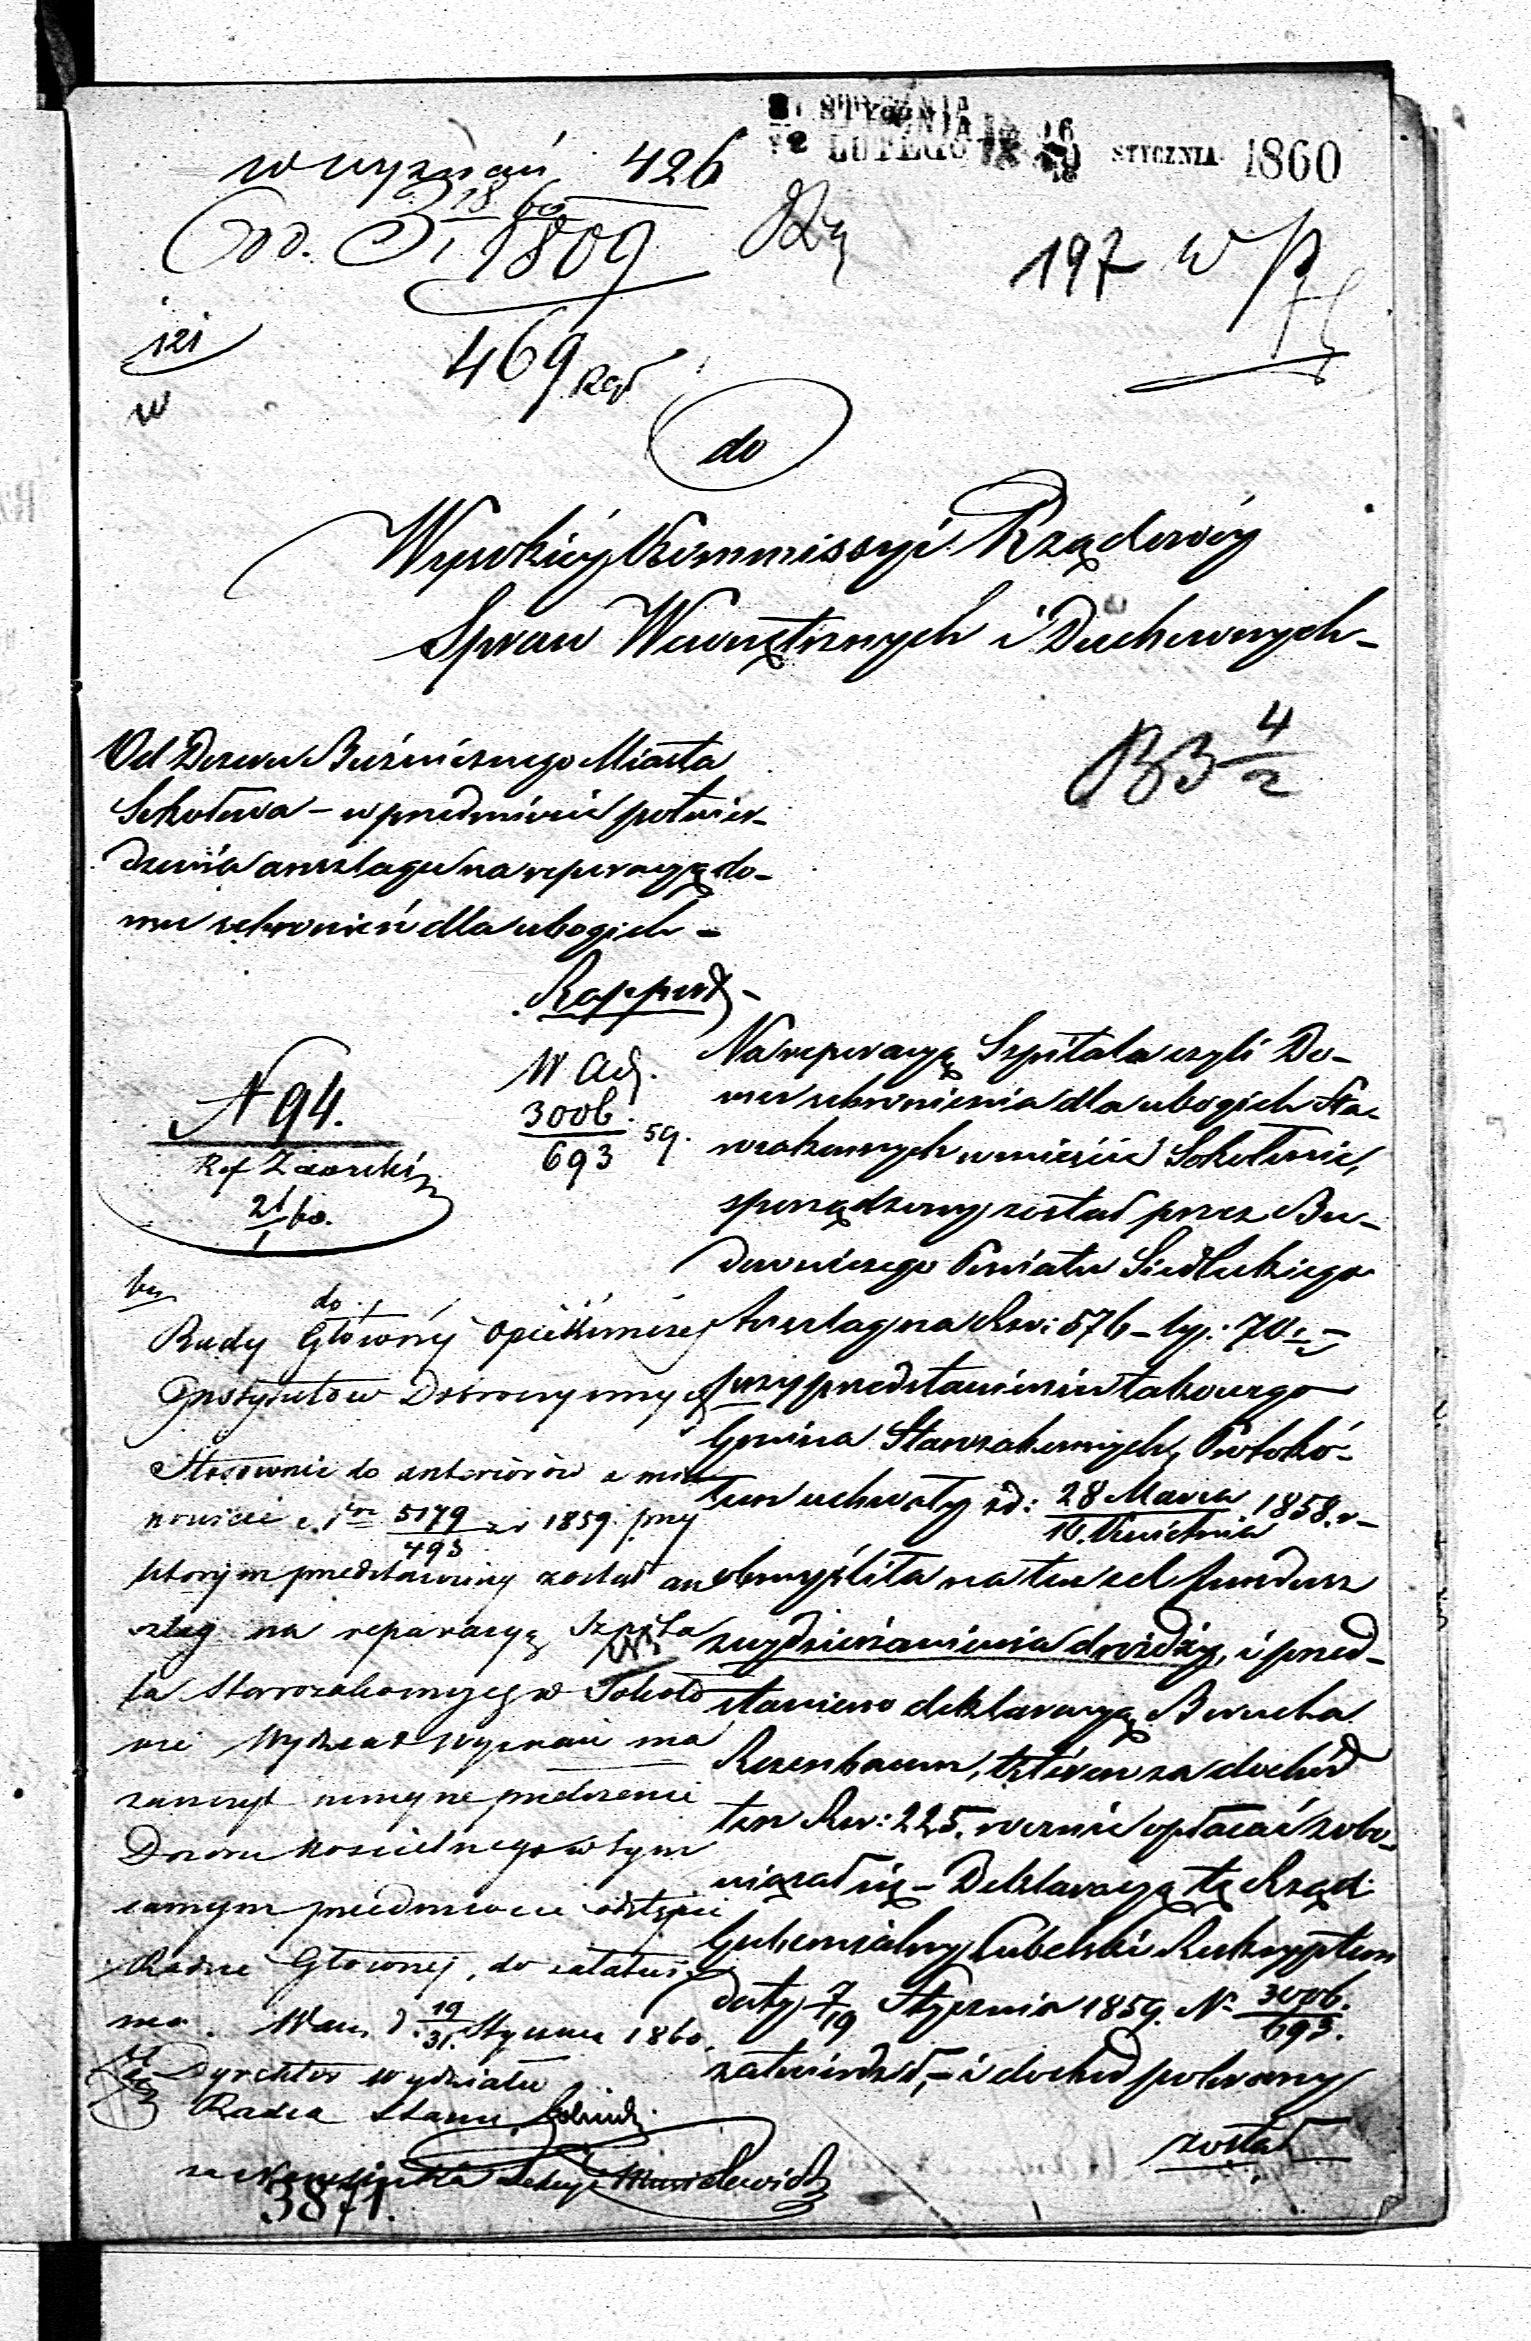 STYCZNIA
LUTEGO
STYCZNIA 1860
w wyznań 426
18 60
1809
197 W
121
W
469
do
Wysokiéj Kommissyi Rządowéj
Spraw Wewnętrznych i Duchownych -
4
2
Od Dozoru Bóźniczego Miasta
Sokołowa - w przedmiocie potwier-
dzenia anszlagu na reperacyą do-
mu schronień dla ubogich -
Rapport -
N 94.
Ref
21/1 60.
W Adj.
3006.
693 59.
Na reperacyą Szpitala czyli Do-
mu schronienia dla ubogich Sta-
rozakonnych w mieście Sokołowie,
sporządzony został przez Bu-
downiczego Powiatu Siedleckiego
Anszlag na Rsr: 576 - kp: 70
przy przedstawieniu takowego
Gmina Starozakonnych, Protokó-
łem uchwały z d: 28 Marca 1858. r -
10. Kwietnia
obmyśliła na ten cel fundusz
z wydzierżawienia drożdży, i przed-
stawiono deklaracyą Berucha
Rozenbaum, który za dochód
ten Rsr: 225. rocznie opłacać zobo-
wiązał się - Deklaracyą tę Rząd
Gubernialny Lubelski Reskryptem
daty 7/19 Stycznia 1859. No 3006.
693.
zatwierdził, - i dochód pobrany
został
do
Rady Głównéj Opiekuńczej
Instytutów Dobroczynnych
Stosownie do anteriorów a mia
nowicie z Nru 5179 z r 1859. przy
493
którym przedstawiony został an
szlag na reparacyą Szpita
la Starozakonnych w Sokoło
wie Wydział Wyznań ma
zaszczyt niniejsze przedstawienie
Dozoru kościelnego w tym
samym przedmiocie odstąpić
Radzie Głównej, do załatwie
nia. Warsz. d. 19/31. Stycznia 1860.
Dyrektor Wydziału
Radca Stanu
za Naczelnika Sekcyi
3871.